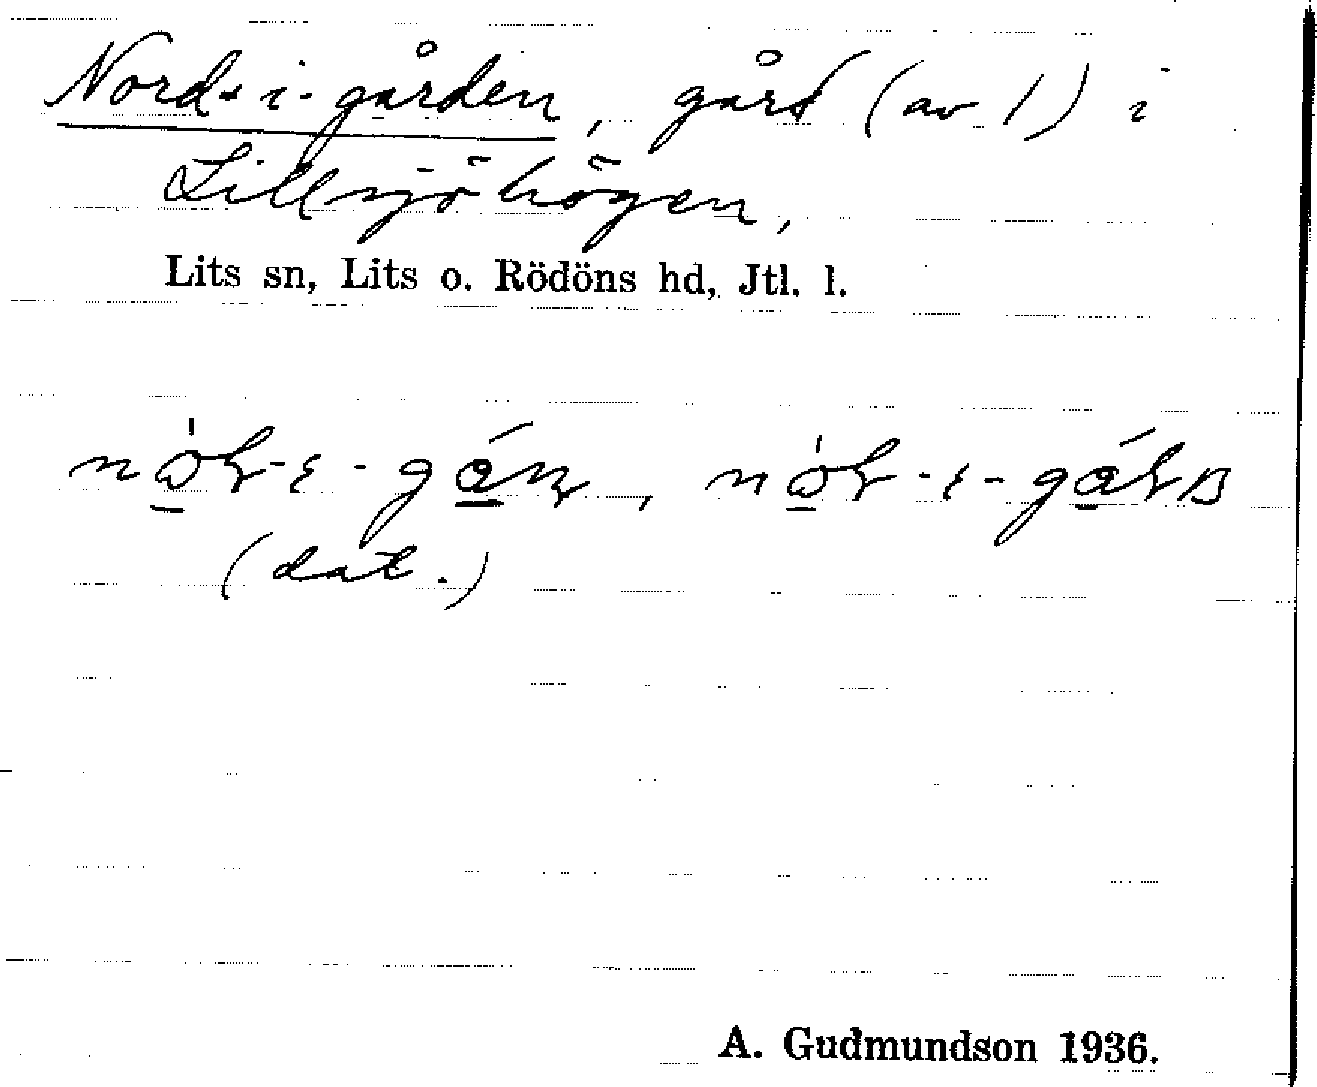 Nord-i-gården, gård (av 1) i
Lillsjöhögen,
Lits sn, Lits o. Rödöns hd, Jtl. l.
(dat.)
A. Gudmundson 1936.